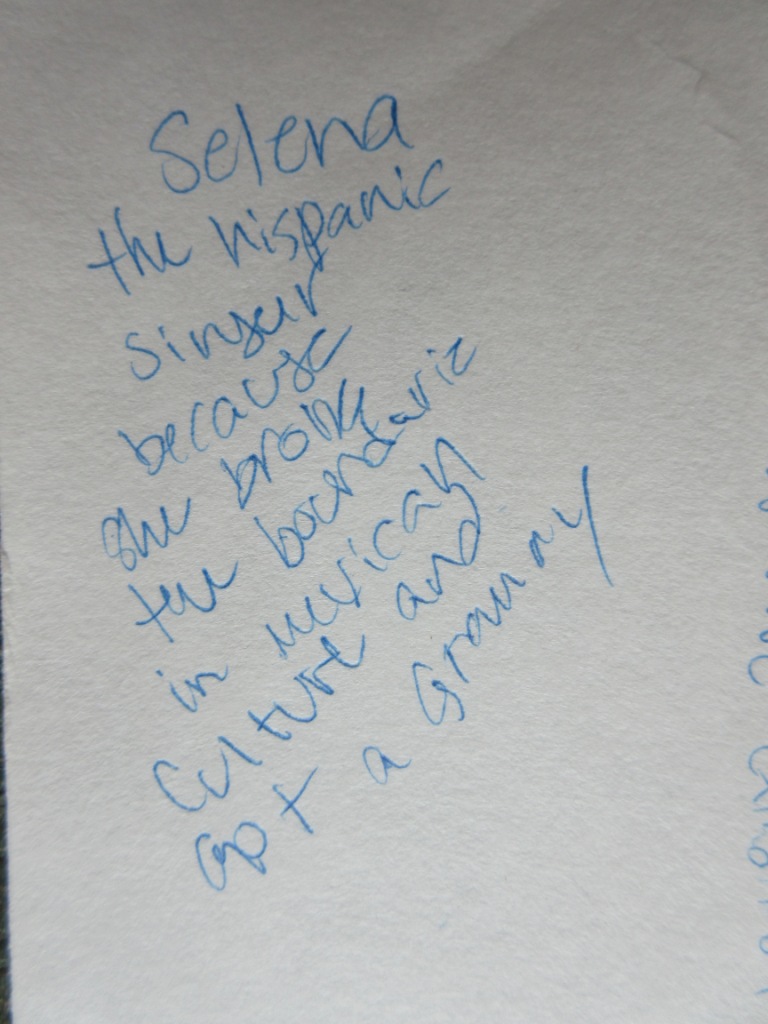 Selena
the hispanic
singer
because
she broke
the boundarie
in mexican
culture and
got a Grammy